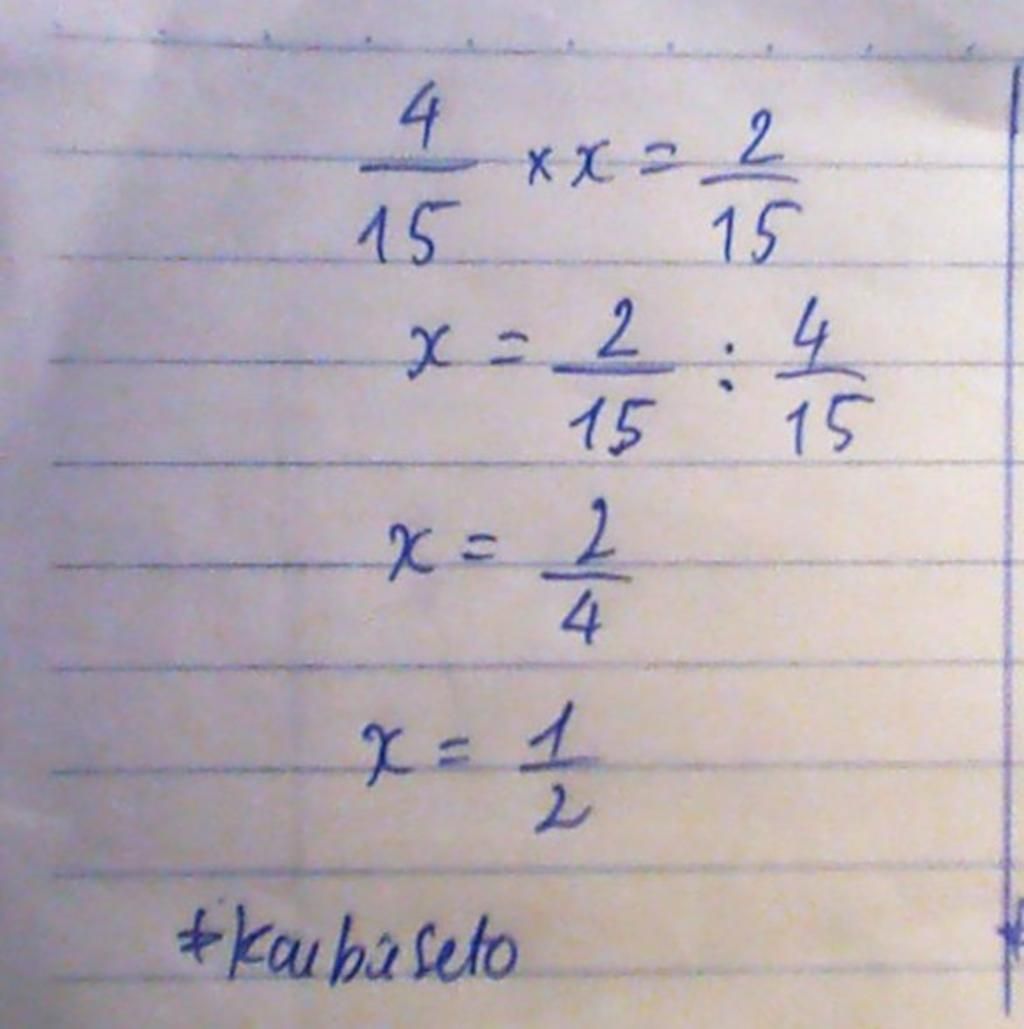 4/15 × x = 2/15
x = 2/15 : 4/15
x = 2/4
x = 1/2
*Kaibaseto